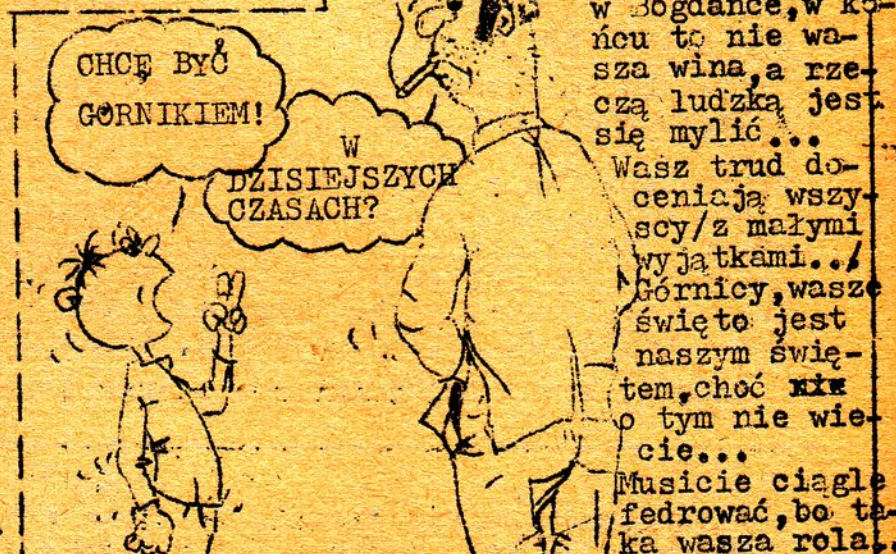 CHCĘ BYĆ
GÓRNIKIEM!
W
DZISIEJSZYCH
CZASACH?
w Bogdance,w ko-
ńcu to nie wa-
sza wina,a rze-
czą ludzką jest
się mylić...
Wasz trud do-
ceniają wszy-
scy/z małymi
wyjątkami../
Górnicy,wasze
święto jest
naszym świę-
tem,choć
o tym nie wie-
cie...
Musicie ciągle
fedrować,bo ta-
ka wasza rola.